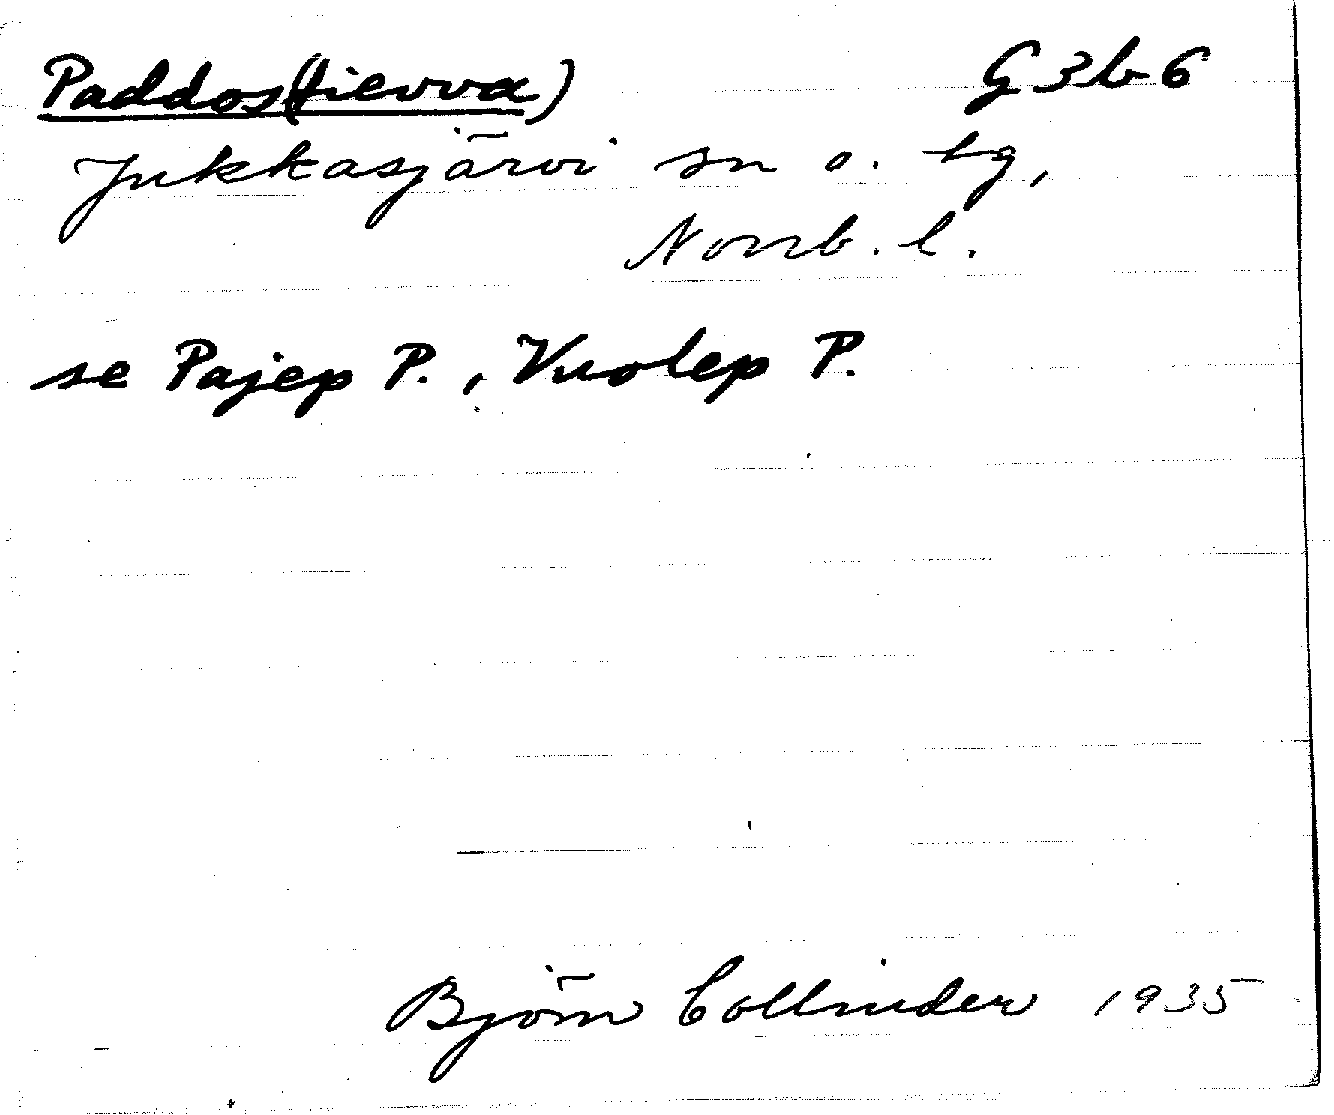 Paddos(tievva) G 3b 6
Jukkasjärvi sn o. tg,
Norrb. l.
se Pajep P., Vuolep P.
Björn Collinder 1935